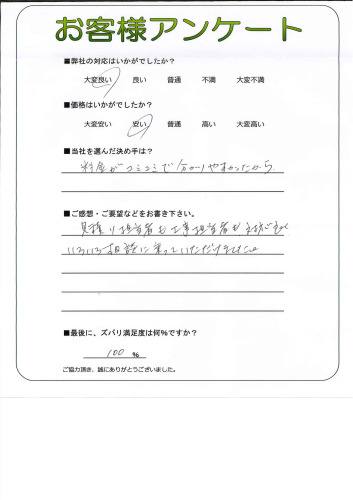 お客様アンケート
■弊社の対応はいかがでしたか？
大変良い 良い 普通 不満 大変不満
■価格はいかがでしたか？
大変安い 安い 普通 高い 大変高い
■当社を選んだ決め手は？
料金がコミコミで分かりやすかったから
■ご感想・ご要望などをお書き下さい。
見積り担当者も工事担当者も
いろいろ相談に乗っていただけました。
■最後に、ズバリ満足度は何％ですか？
100 %
ご協力頂き、誠にありがとうございました。